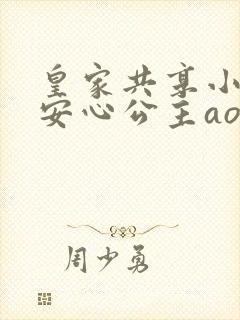 皇家共享小
安心公主ao
周少勇